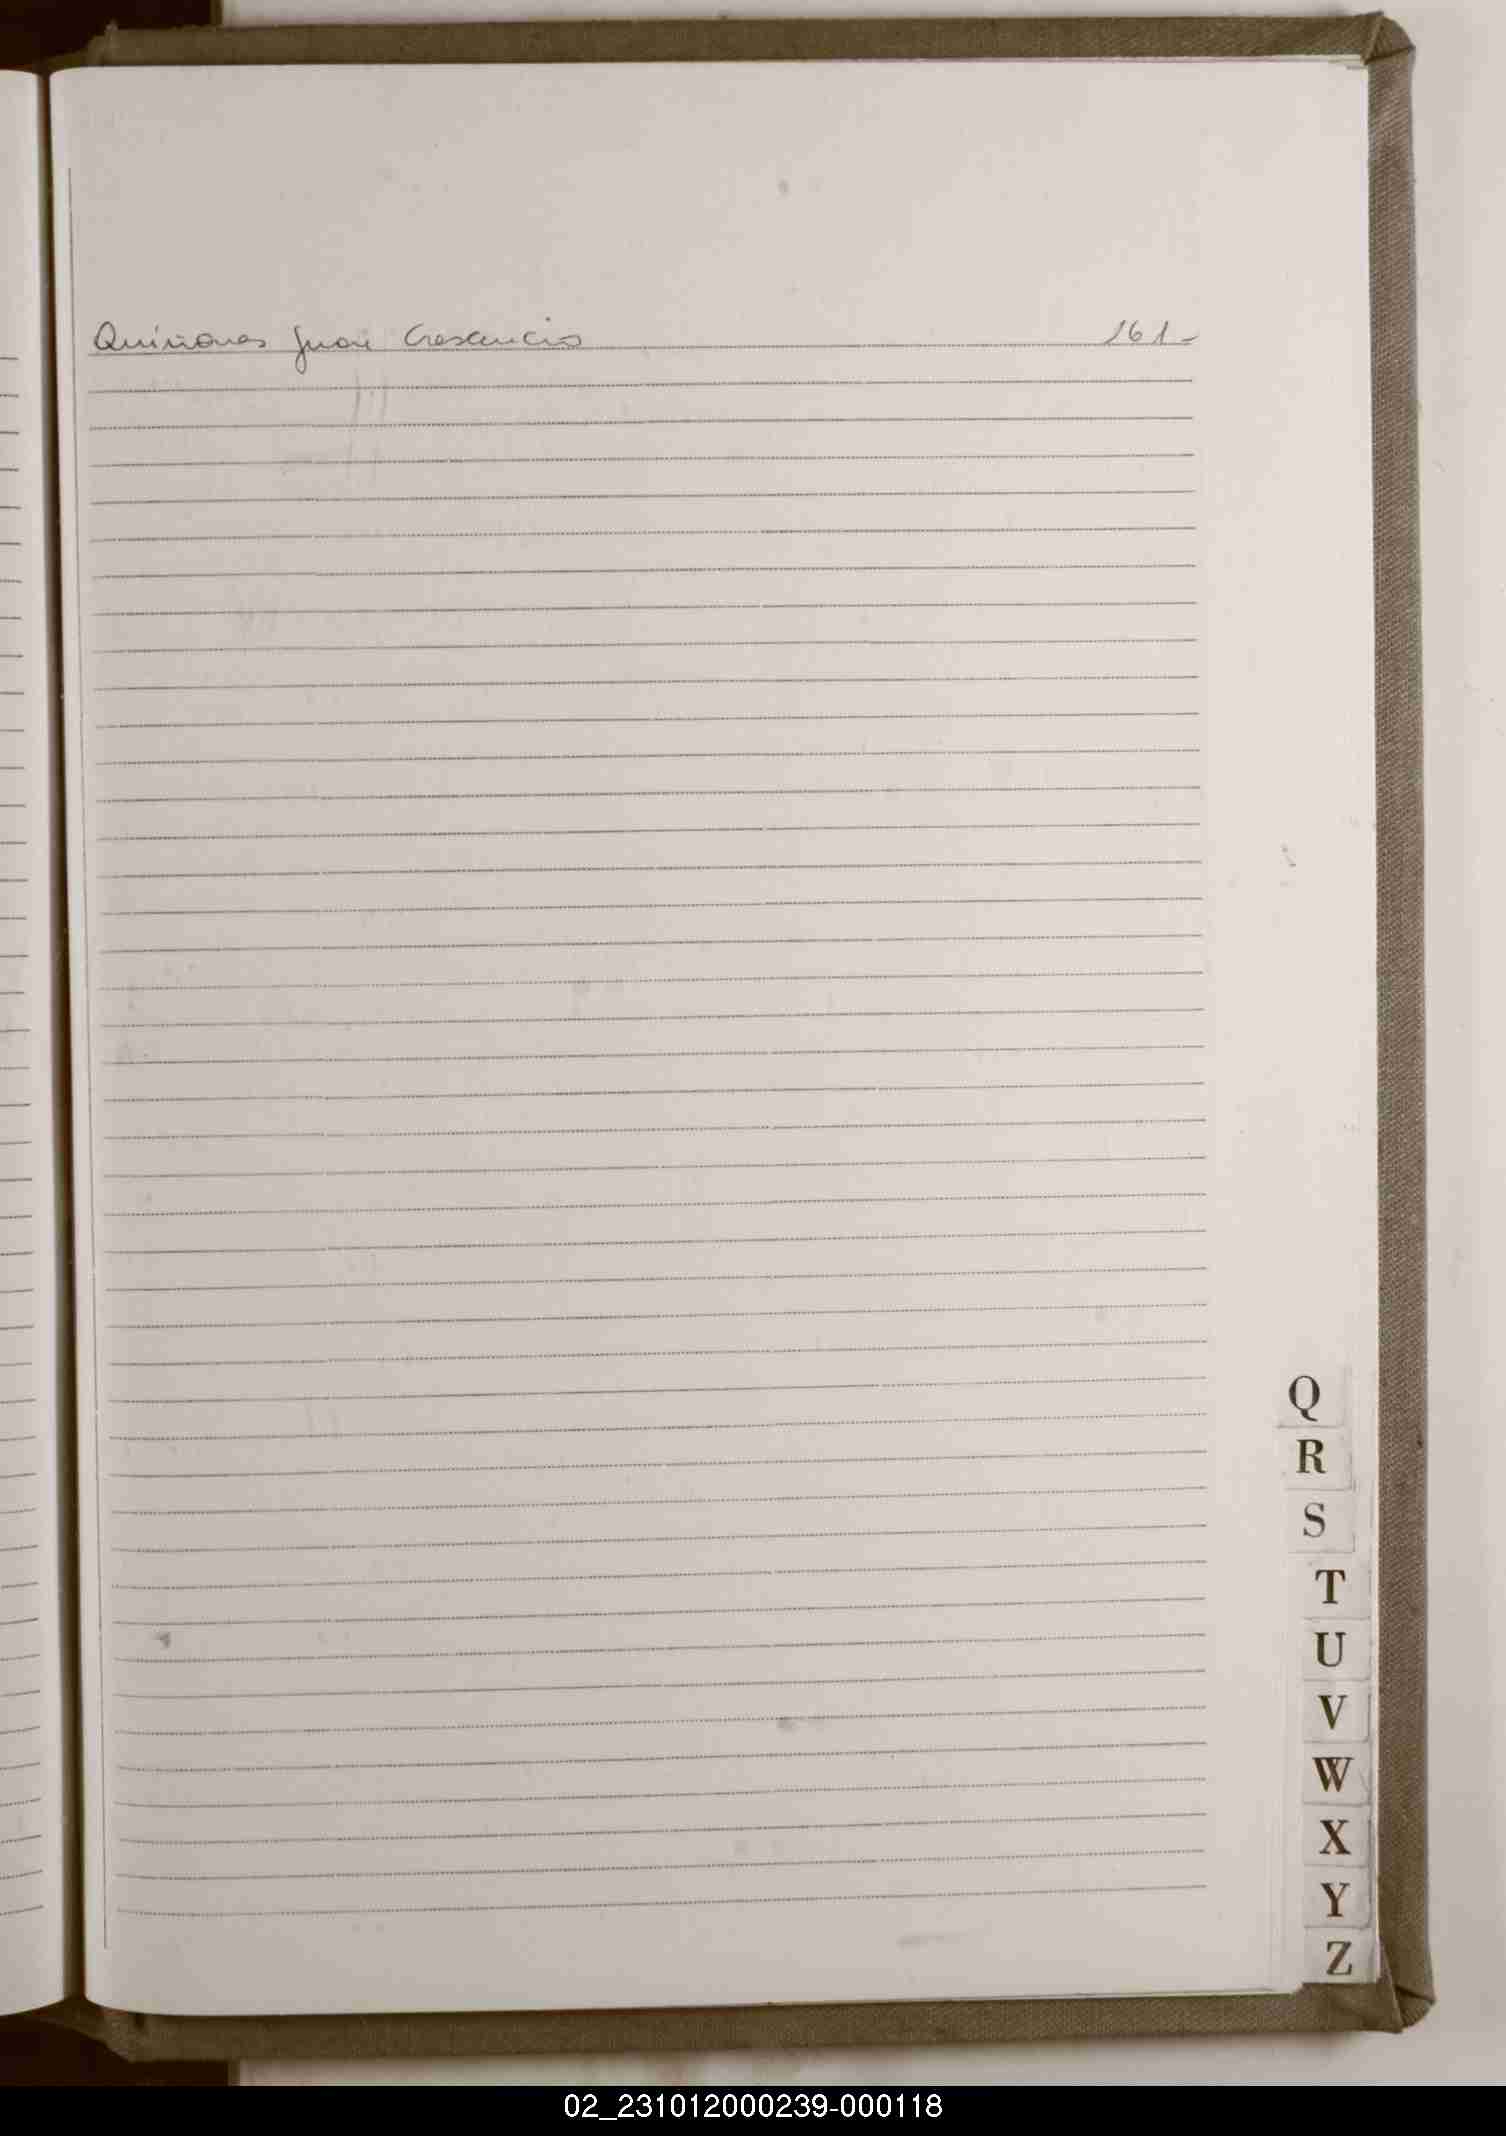 Quiñones Juan Crescencio 161-
Q
R
S
T
U
V
W
X
Y
Z
02_231012000239-000118